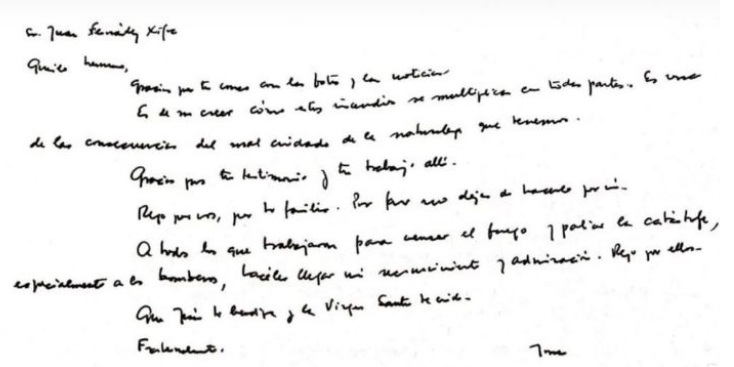 Sr. Juan Fernández Xifra
Querido hermano,
Gracias por tu correo con las fotos y las noticias.
Es de no creer cómo estos incendios se multiplican en todas partes. Es una
de las consecuencias del mal cuidado de la naturaleza que tenemos.
Gracias por tu testimonio y tu trabajo allí.
Rezo por vos, por tu familia. Por favor no dejes de hacerlo por mí.
A todos los que trabajaron para vencer el fuego y paliar la catástrofe,
especialmente a los bomberos, haceles llegar mi reconocimiento y admiración. Rezo por ellos.
Que Jesús te bendiga y la Virgen Santa te cuide.
Fraternalmente.